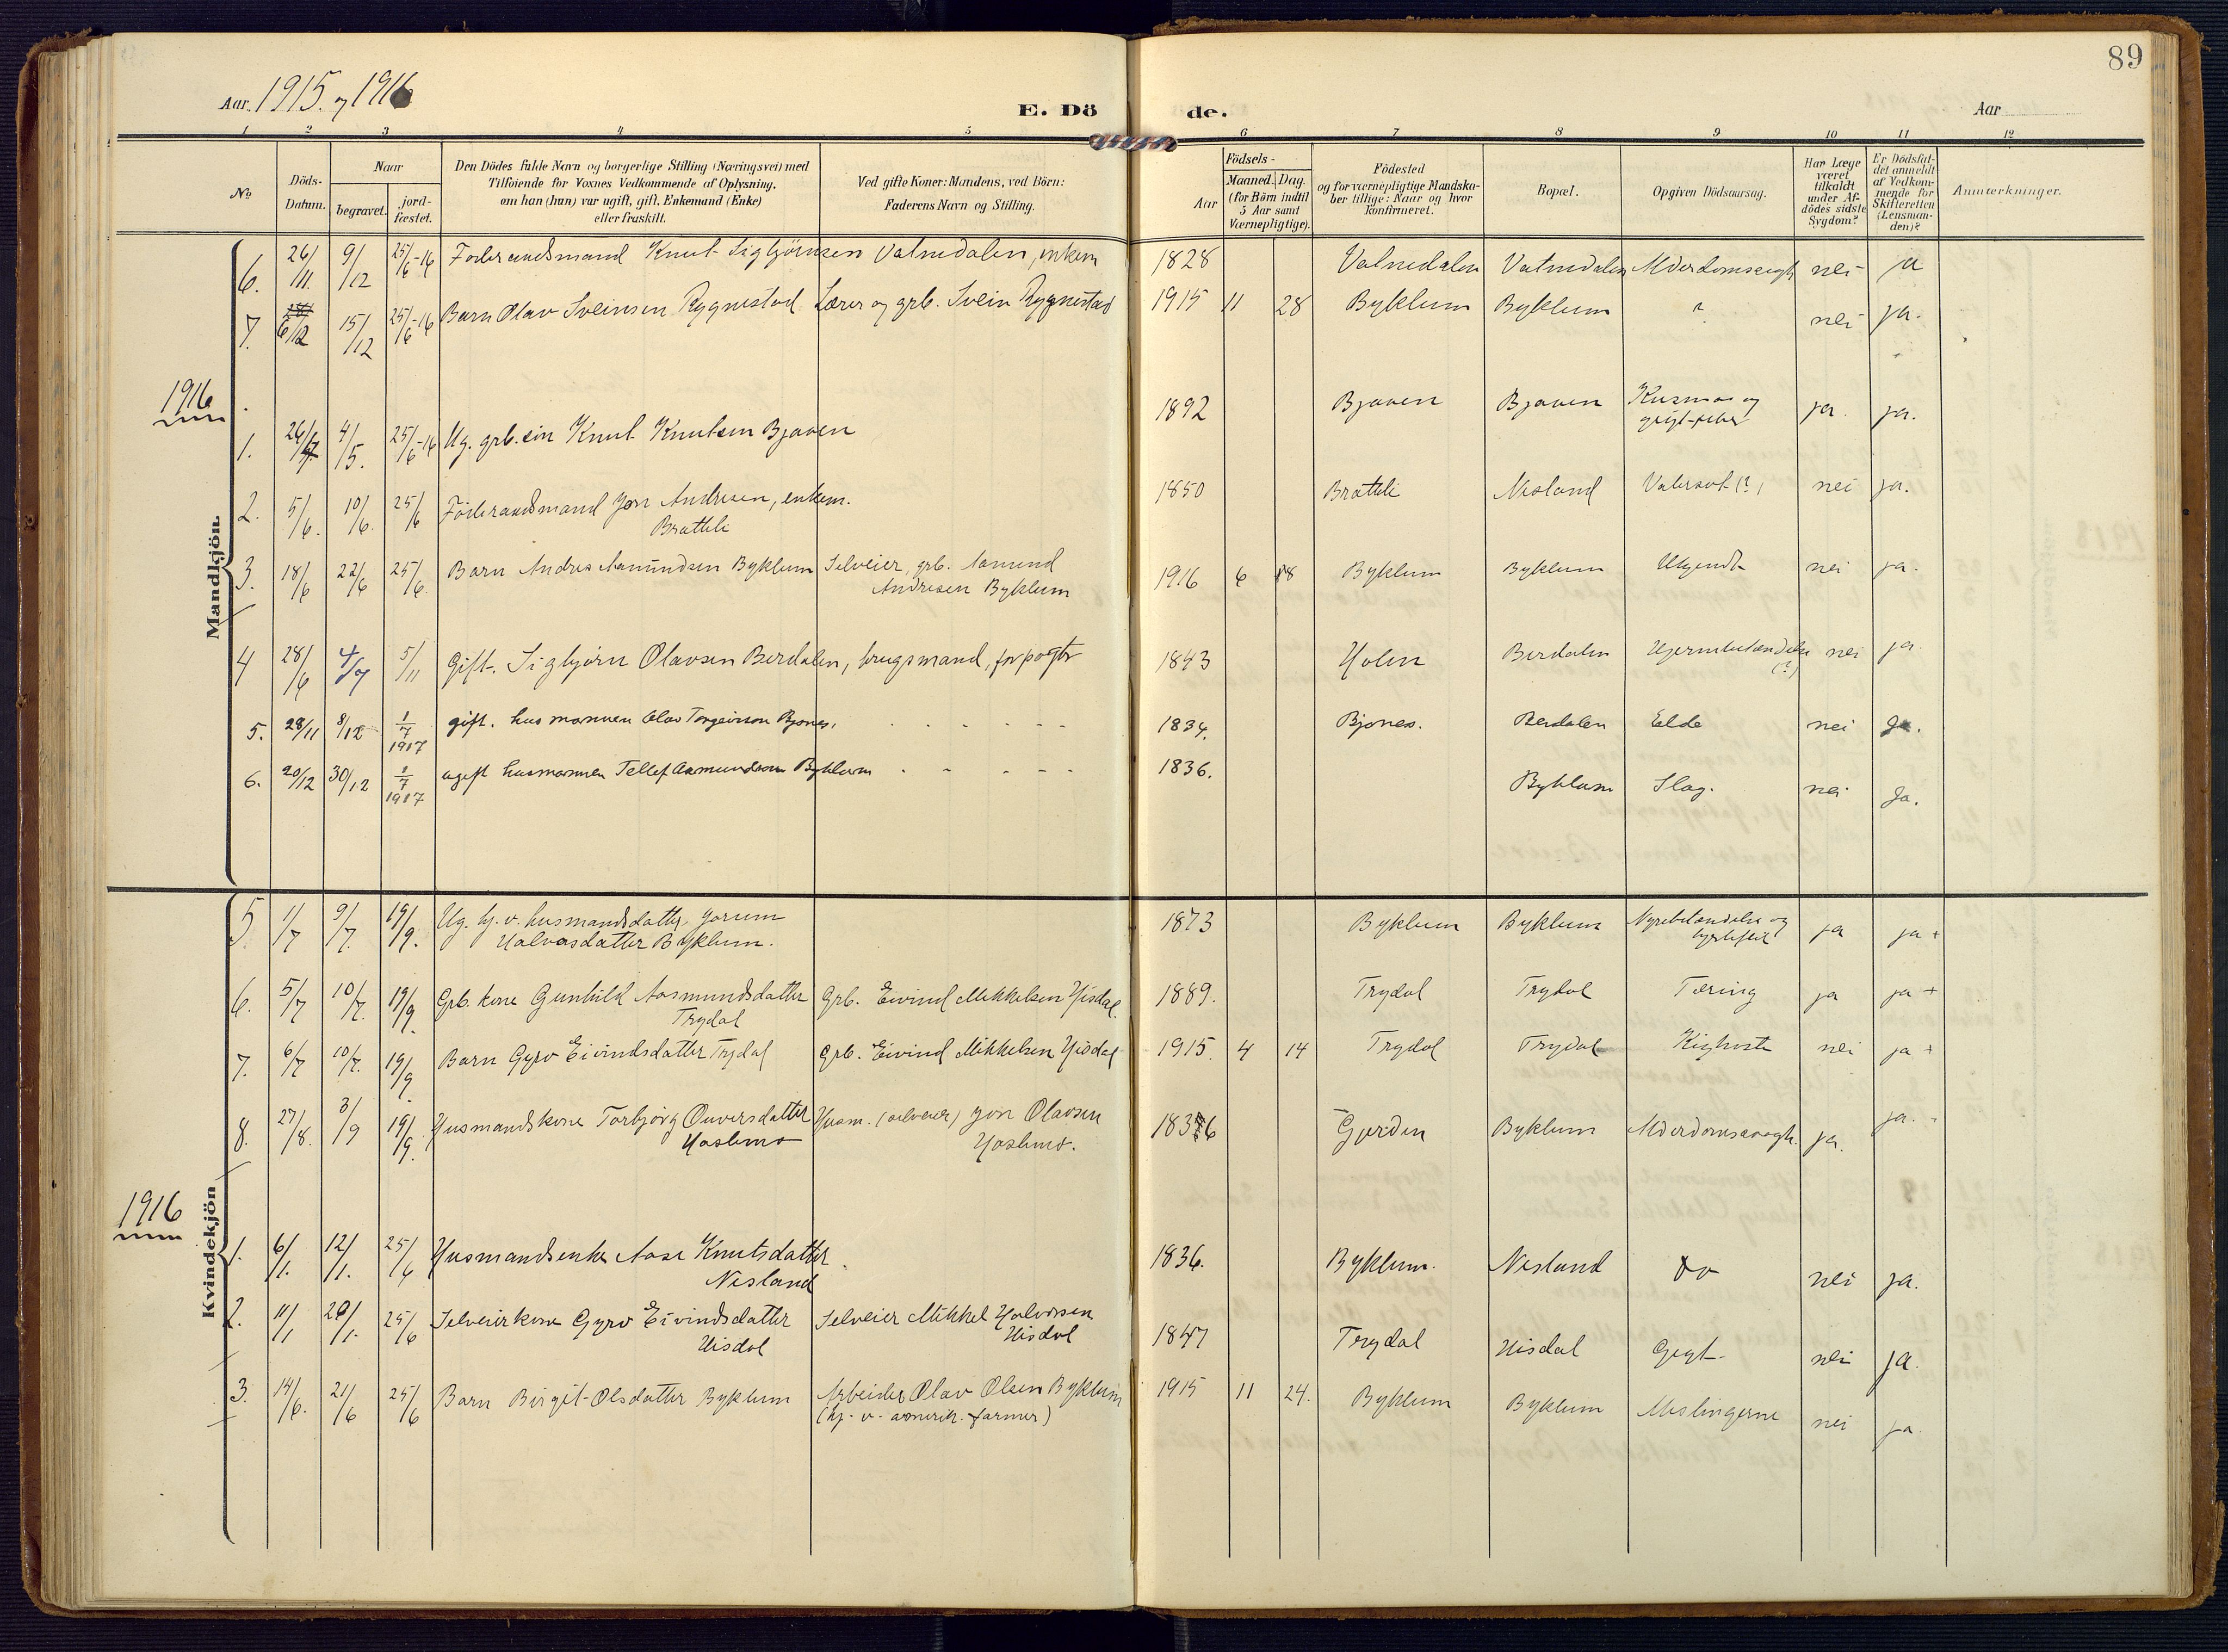 89
Aar. 1915. og 1916
E. Dö de.
Aar
1 2 3 4 5 6 7 8 9 10 11 12
No
Döds-Datum.
Naar
begravet.
jord-fæstet.
Den Dödes fulde Navn og borgerlige Stilling (Næringsvei) med
Tilföiende for Voxnes Vedkommende af Oplysning,
om han (hun) var ugift, gift, Enkemand (Enke)
eller fraskilt.
Ved gifte Koner: Mandens, ved Börn:
Faderens Navn og Stilling.
Födsels-
Aar
Maaned. Dag.
(for Börn indtil
5 Aar samt
Værnepligtige).
Födested
og for værnepligtige Mandska-
ber tillige: Naar og hvor
konfirmeret.
Bopæl.
Opgiven Dödsaarsag.
Har Læge
været
tilkaldt
under Af-
dödes sidste
Sygdom?
Er Dödsfal-
det anmeldt
af Vedkom-
mende for
Skifteretten
(Lensman-
den)?
Anmærkninger.
Mandkjön.
6. 26/11. 9/12 25/6-16 Föderaadsmand Knut Sigbjörnsen Vatnedalen, enkem 1828 Vatnedalen Vatnedalen Alderdomssvagh. nei ja
7. 6/12 15/12 25/6-16 Barn Olav Sveinsen Rygnestad Lærer og grb. Svein Rygnestad 1915 11 28 Byklum Byklum ? nei ja.
1916
1. 26/4 4/5. 25/6-16 Ug. grb.sön Knut Knutsen Bjaaen 1892 Bjaaen Bjaaen og ja. ja.
2. 5/6. 10/6. 25/6 Föderaadsmand Jon Andresen, enkem.
Brattli 1850 Brattli Nesland (?) nei ja.
3. 18/6 22/6 25/6. Barn Andres Aamundsen Byklum Selveier, grb. Aamund
Andresen Byklum 1916 6 18 Byklum Byklum Ukjendt nei ja.
4 28/6 4/7 5/11 Gift. Sigbjörn Olavsen Berdalen, brugsmand, forpagter 1843 Holen Berdalen Hjernebetændelse
(?) nei ja.
5. 28/11 8/12 1/7 1917 gift. husmannen Olav Torgeirson Bjones. 1834. Bjones. Berdalen Elde nei Ja.
6. 20/12 30/12 1/7 1917 ugift husmannen Tellef Aamundson Byklum 1836. Byklum Slag. nei Ja.
Kvindekjön
5. 1/7 9/7. 19/9. Ug. h. v. husmandsdatter Jorunn
Halvorsdatter Byklum. 1873 Byklum Byklum Nyrebetændelse og
ja ja +
6. 5/7 10/7. 19/9. Grb. kone Gunhild Aasmundsdatter
Trydal Grb. Eivind Mikkelsen Hisdal. 1889. Trydal Trydal Tæring ja ja +
7. 6/7 10/7. 19/9. Barn Gyro Eivindsdatter Trydal Grb. Eivind Mikkelsen Hisdal 1915. 4 14 Trydal Trydal Kighoste nei ja +
8. 27/8. 3/9 19/9. Husmandskone Torbjörg Gunversdatter
Hoslemo Husm. (selveier) Jon Olavsen
Hoslemo. 1836 Gjerden Byklum Alderdomssvagh. ja. ja.
1916
1. 6/1. 12/1. 25/6 Husmandsenke Aase Knutsdatter
Nesland 1836. Byklum. Nesland do nei ja.
2. 11/1 20/1. 25/6 Selveierkone Gyro Eivindsdatter
Hisdal Selveier Mikkel Halvorsen
Hisdal 1847 Trydal Hisdal Gigt. nei ja.
3. 14/6. 21/6 25/6 Barn Birgit Olsdatter Byklum Arbeider Olav Olsen Byklum
(hj. v. amerik. farmer) 1915 11 24. Byklum Byklum Meslingerne nei ja